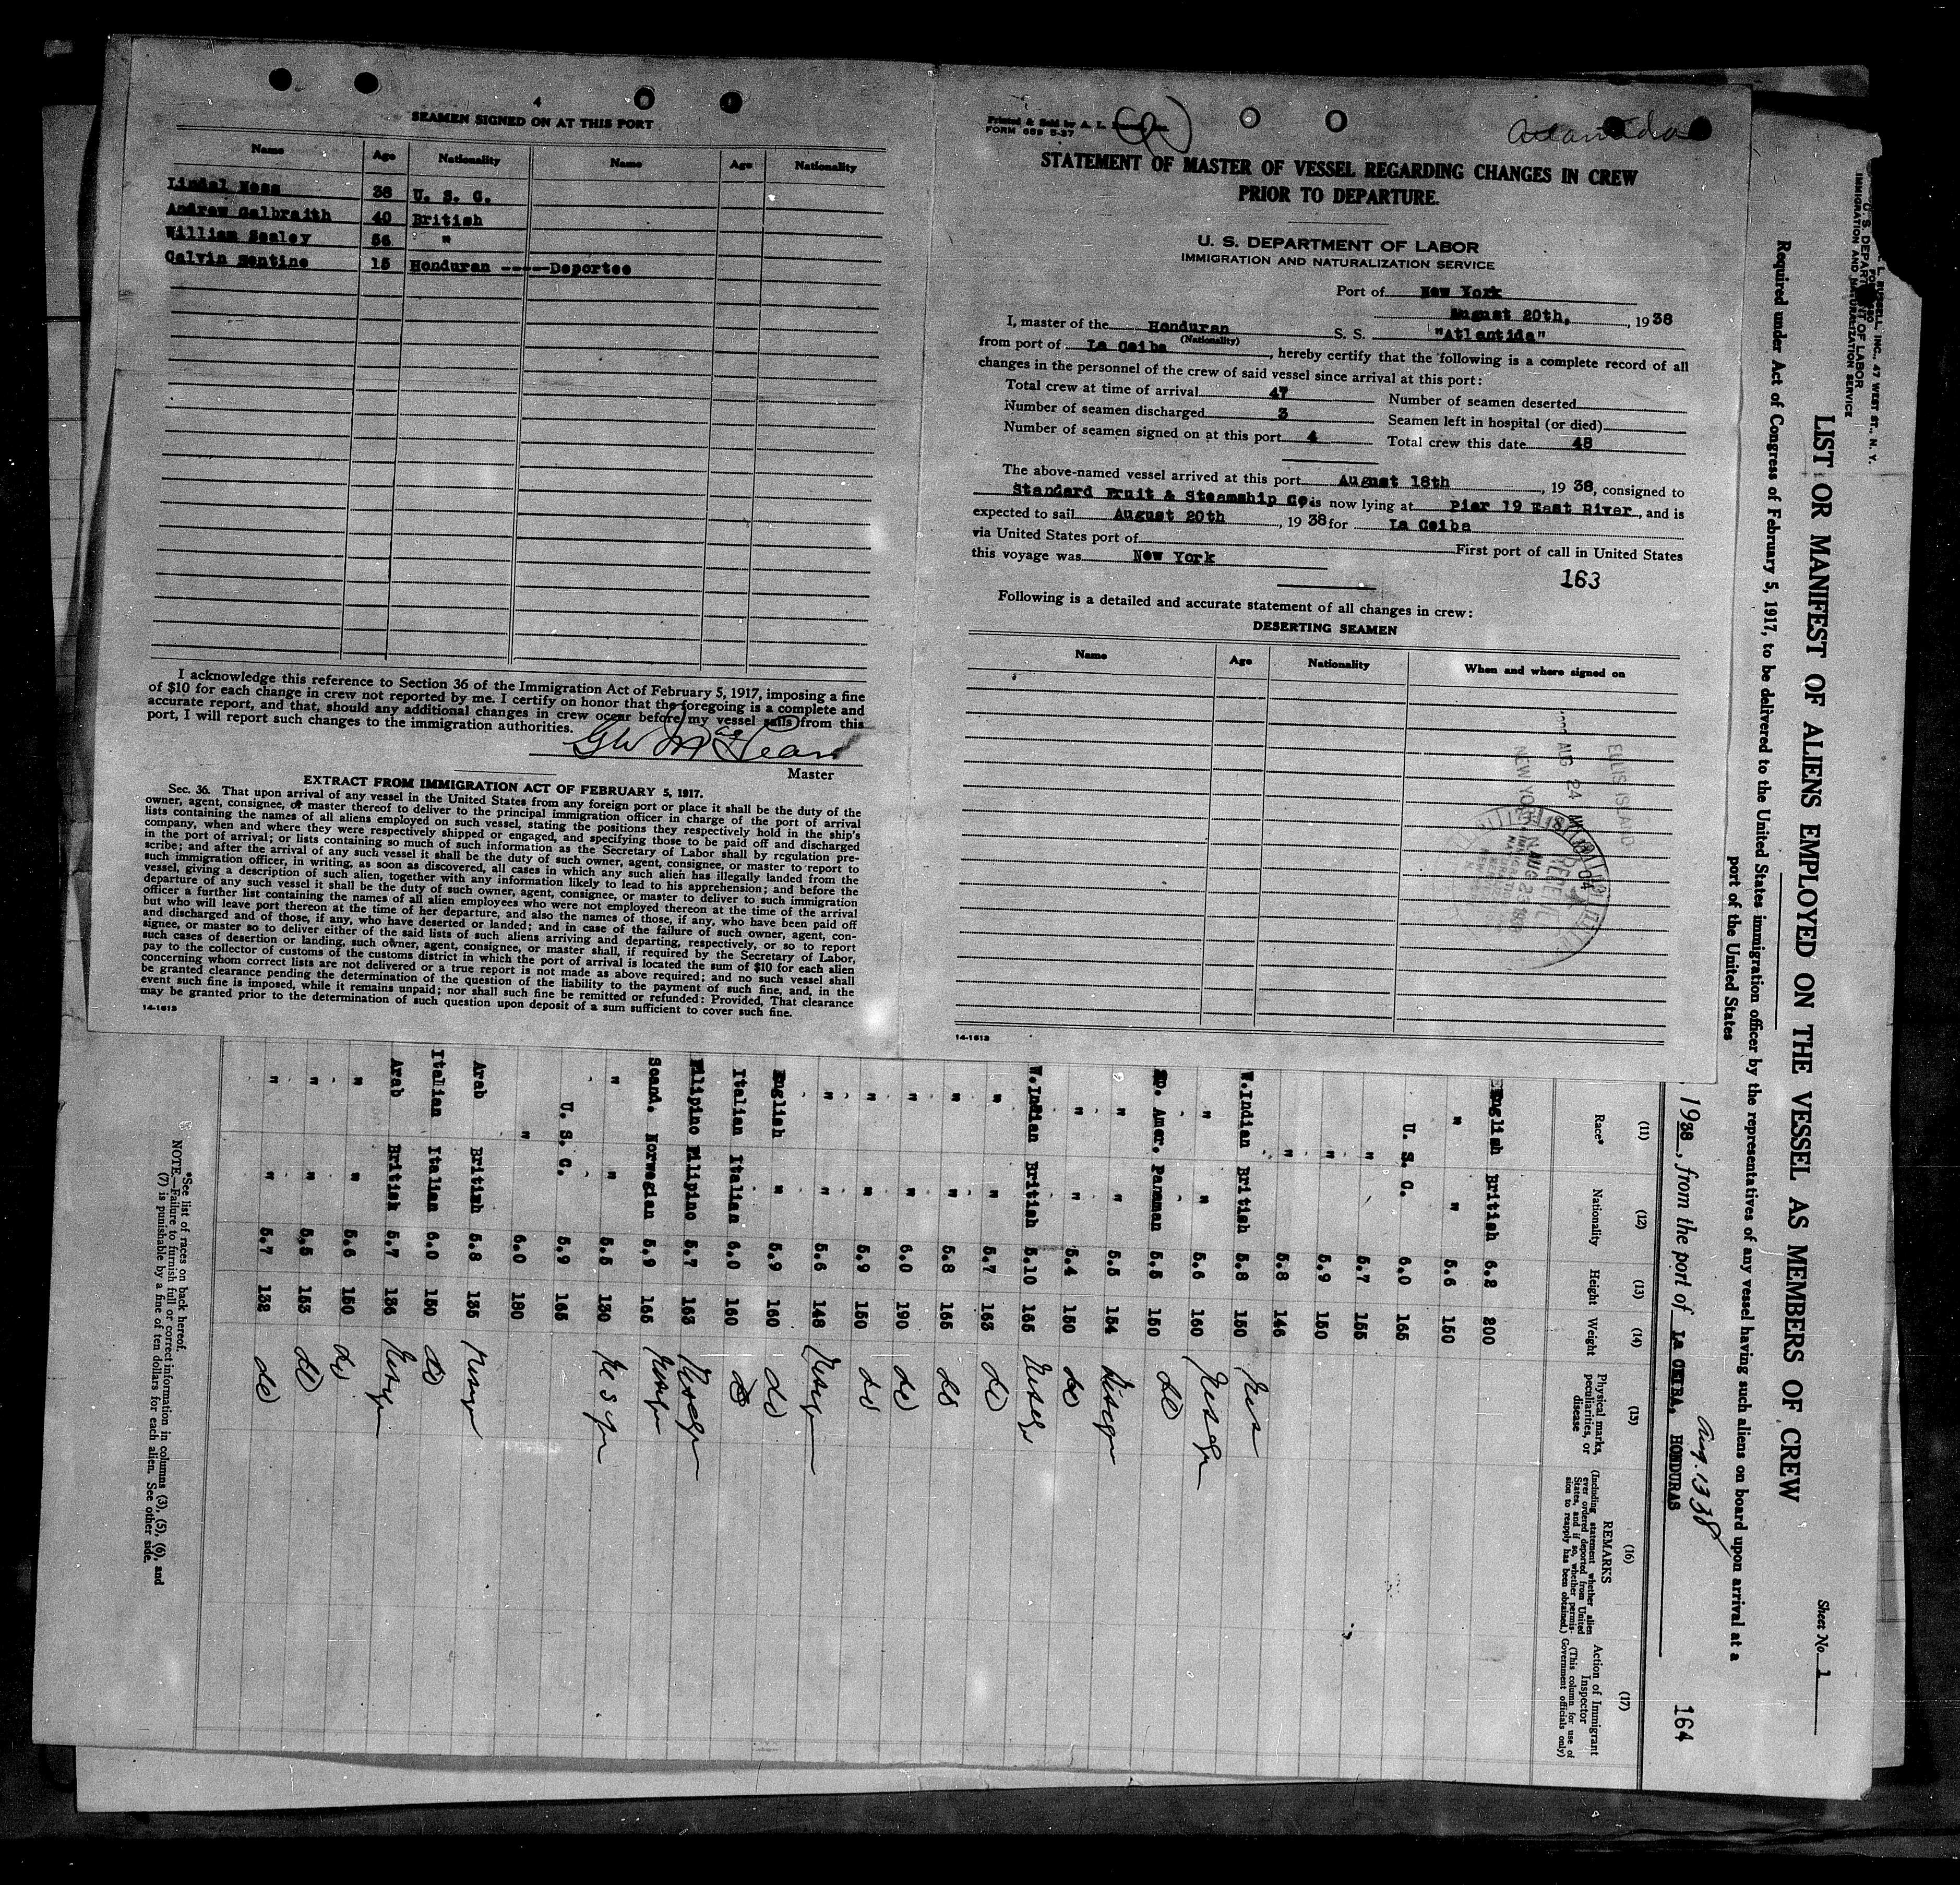 4
SEAMEN SIGNED ON AT THIS PORT
Name Age Nationality Name Age Nationality
38 U. S. C.
Andrew Galbraith 40 British
William Sealey 56 "
Calvin 15 Honduran -----Deportee
I acknowledge this reference to Section 36 of the Immigration Act of February 5, 1917, imposing a fine
of $10 for each change in crew not reported by me. I certify on honor that the foregoing is a complete and
accurate report, and that, should any additional changes in crew occur before my vessel sails from this
port, I will report such changes to the immigration authorities.
Master
EXTRACT FROM IMMIGRATION ACT OF FEBRUARY 5, 1917.
Sec. 36. That upon arrival of any vessel in the United States from any foreign port or place it shall be the duty of the
owner, agent, consignee, or master thereof to deliver to the principal immigration officer in charge of the port of arrival
lists containing the names of all aliens employed on such vessel, stating the positions they respectively hold in the ship's
company, when and where they were respectively shipped or engaged, and specifying those to be paid off and discharged
in the port of arrival; or lists containing so much of such information as the Secretary of Labor shall by regulation pre-
scribe; and after the arrival of any such vessel it shall be the duty of such owner, agent, consignee, or master to report to
such immigration officer, in writing, as soon as discovered, all cases in which any such alien has illegally landed from the
vessel, giving a description of such alien, together with any information likely to lead to his apprehension; and before the
departure of any such vessel it shall be the duty of such owner, agent, consignee, or master to deliver to such immigration
officer a further list containing the names of all alien employees who were not employed thereon at the time of the arrival
but who will leave port thereon at the time of her departure, and also the names of those, if any, who have been paid off
and discharged and of those, if any, who have deserted or landed; and in case of the failure of such owner, agent, con-
signee, or master so to deliver either of the said lists of such aliens arriving and departing, respectively, or so to report
such cases of desertion or landing, such owner, agent, consignee, or master shall, if required by the Secretary of Labor,
pay to the collector of customs of the customs district in which the port of arrival is located the sum of $10 for each alien
concerning whom correct lists are not delivered or a true report is not made as above required; and no such vessel shall
be granted clearance pending the determination of the question of the liability to the payment of such fine, and, in the
event such fine is imposed, while it remains unpaid; nor shall such fine be remitted or refunded: Provided, That clearance
may be granted prior to the determination of such question upon deposit of a sum sufficient to cover such fine.
14-1613
Printed & Sold by A. L.
FORM 689 5-37
STATEMENT OF MASTER OF VESSEL REGARDING CHANGES IN CREW
PRIOR TO DEPARTURE.
U. S. DEPARTMENT OF LABOR
IMMIGRATION AND NATURALIZATION SERVICE
Port of New York
August 20th, , 1938
I, master of the Honduran S. S. "Atlantida"
(Nationality)
from port of La Ceiba , hereby certify that the following is a complete record of all
changes in the personnel of the crew of said vessel since arrival at this port:
Total crew at time of arrival 47 Number of seamen deserted
Number of seamen discharged 3 Seamen left in hospital (or died)
Number of seamen signed on at this port 4 Total crew this date 48
The above-named vessel arrived at this port August 18th , 1938, consigned to
Standard Fruit & Steamship Co. is now lying at Pier 19 East River, and is
expected to sail August 20th , 1938 for La Ceiba
via United States port of First port of call in United States
this voyage was New York
163
Following is a detailed and accurate statement of all changes in crew:
DESERTING SEAMEN
Name Age Nationality When and where signed on
ELLIS ISLAND
AUG 24
14-1613
L. RUSSELL INC., 47 WEST ST., N. Y.
U. S. DEPARTMENT OF LABOR
IMMIGRATION AND NATURALIZATION SERVICE
Sheet No. 1
LIST OR MANIFEST OF ALIENS EMPLOYED ON THE VESSEL AS MEMBERS OF CREW
Required under Act of Congress of February 5, 1917, to be delivered to the United States immigration officer by the representatives of any vessel having such aliens on board upon arrival at a
port of the United States
Aug. 13 38
1938, from the port of LA CEIBA, HONDURAS
164
(11) (12) (13) (14) (15) (16) (17)
Race* Nationality Height Weight Physical marks, peculiarities, or disease REMARKS (Including statement whether alien ever ordered deported from United States, and if so, whether permission to reapply has been obtained.) Action of Immigrant Inspector (This column for use of Government officials only)
English British 6.2 200
" " 5.6 150
U. S. C. 6.0 165
" 5.7 155
" 5.9 150
" 5.8 146
W.Indian British 5.8 150
" " 5.6 160
Sp. Amer. Panman 5.5 150 do
" " 5.5 154
" " 5.4 150 do
W.Indian British 5.10 165
" " 5.7 163 do
" " 5.8 165 do
" " 6.0 190 do
" " 5.9 150 do
" " 5.6 148
English " 5.9 160 do
Italian Italian 6.0 160 do
Filipino Filipino 5.7 163
Scand. Norwegian 5.9 165
" " 5.5 130
U. S. C. 5.9 165
" 6.0 180
Arab British 5.8 135
Italian Italian 6.0 150 do
Arab British 5.7 136
" " 5.6 150 do
" " 5.5 153 do
" " 5.7 132 do
*See list of races on back hereof.
NOTE.—Failure to furnish full or correct information in columns (3), (5), (6), and
(7) is punishable by a fine of ten dollars for each alien. See other side.